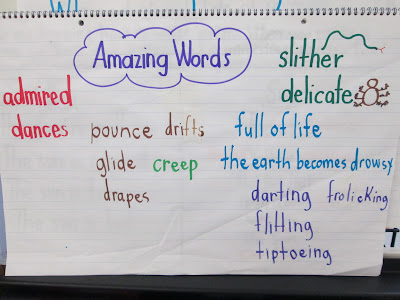 Amazing Words
slither
delicate
admired
dances
pounce drifts
full of life
glide creep
the earth becomes drowsy
drapes
darting frolicking
flitting
tiptoeing